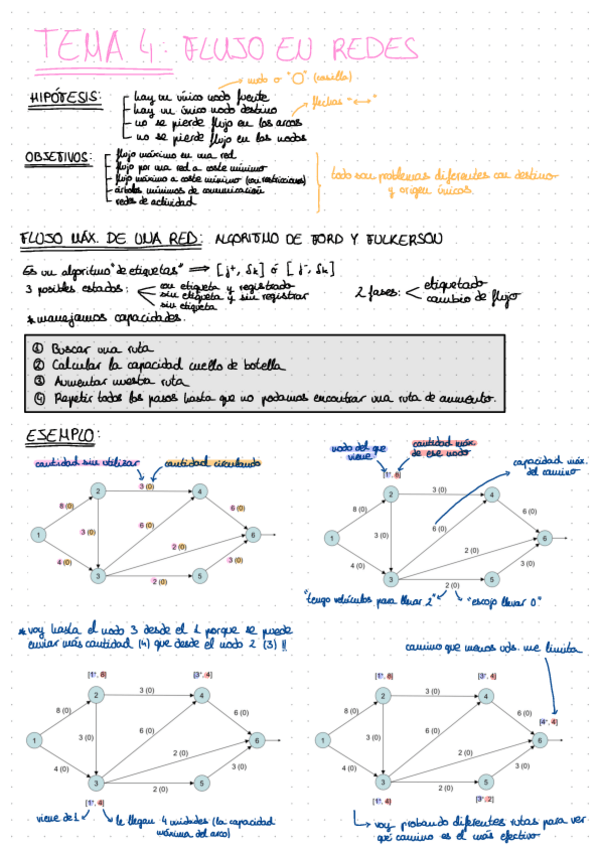 TEMA 4: FLUJO EN REDES
nodo o "O" (casilla)
HIPÓTESIS:
hay un único nodo fuente
hay un único nodo destino
flechas "←→"
no se pierde flujo en los arcos
no se pierde flujo en los nodos
OBJETIVOS:
flujo máximo en una red
flujo por una red a coste mínimo
flujo máximo a coste mínimo (con restricciones)
árboles mínimos de comunicación
redes de actividad
todo son problemas diferentes con destino
y origen únicos.
FLUJO MÁX. DE UNA RED: ALGORITMO DE FORD Y FULKERSON
Es un algoritmo "de etiquetas" ⟹ [j+, δk] ó [j-, δk]
3 posibles estados:
con etiqueta y registrado
sin etiqueta y sin registrar
sin etiqueta
2 fases:
etiquetado
cambio de flujo
*manejamos capacidades.
① Buscar una ruta
② Calcular la capacidad cuello de botella
③ Aumentar nuestra ruta
④ Repetir todos los pasos hasta que no podamos encontrar una ruta de aumento.
EJEMPLO:
cantidad sin utilizar
cantidad circulando
nodo del que
viene
cantidad máx.
de ese nodo
capacidad máx.
del camino
[1+, 8]
1 2 3 4 5 6
8 (0) 3 (0) 3 (0) 4 (0) 6 (0) 2 (0) 2 (0) 6 (0) 3 (0)
1 2 3 4 5 6
8 (0) 3 (0) 3 (0) 4 (0) 6 (0) 2 (0) 2 (0) 6 (0) 3 (0)
"tengo vehículos para llevar 2"
"escojo llevar 0"
* voy hasta el nodo 3 desde el 1 porque se puede
enviar más cantidad (4) que desde el nodo 2 (3) !!
camino que menos uds. me limita
[1+, 8] [3+, 4]
1 2 3 4 5 6
8 (0) 3 (0) 3 (0) 4 (0) 6 (0) 2 (0) 2 (0) 6 (0) 3 (0)
[1+, 4]
viene de 1
le llegan 4 unidades (la capacidad
máxima del arco)
[1+, 8] [3+, 4] [4+, 4]
1 2 3 4 5 6
8 (0) 3 (0) 3 (0) 4 (0) 6 (0) 2 (0) 2 (0) 6 (0) 3 (0)
[1+, 4] [3+, 2]
voy probando diferentes rutas para ver
qué camino es el más efectivo